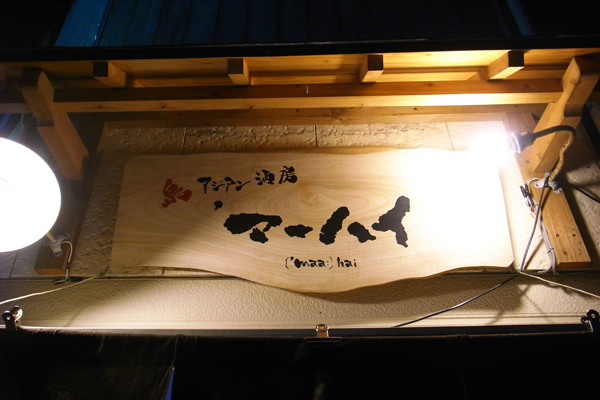 アジアン酒房
'マーハイ
('maa:) hai